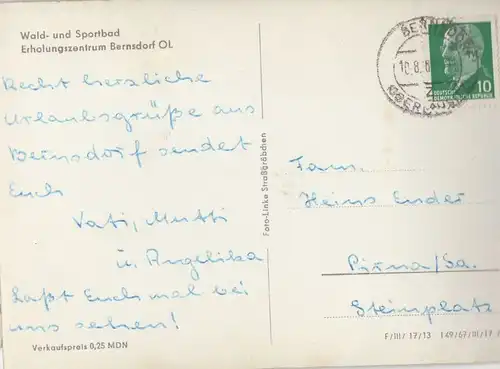 Wald- und Sportbad
Erholungszentrum Bernsdorf OL
Recht herzliche
Urlaubsgrüße aus
Bernsdorf sendet
Euch
Vati, Mutti
u. Angelika
Laßt Euch mal bei
uns sehen!
Verkaufspreis 0,25 MDN
Foto-Linke Straßgräbchen
10.8.6
DEUTSCHE
DEMOKRATISCHE REPUBLIK
10
Fam.
Heinz Ender
Pirna/Sa.
Steinplatz
F/III/ 17/13 149/67/III/17/